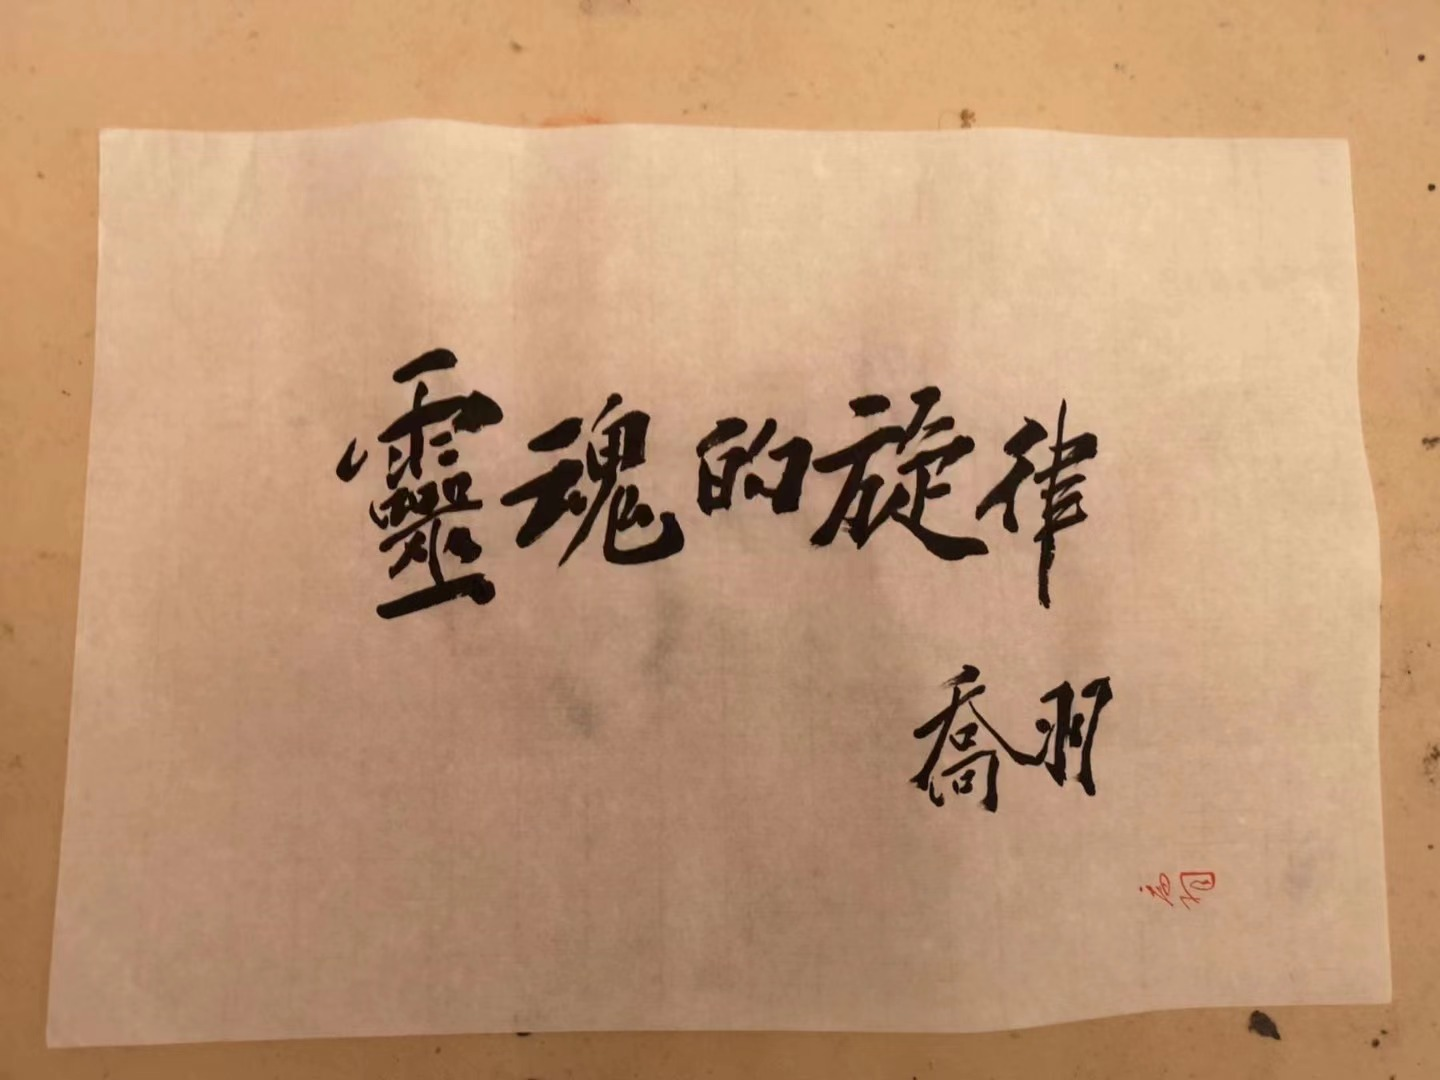 靈魂的旋律
喬羽